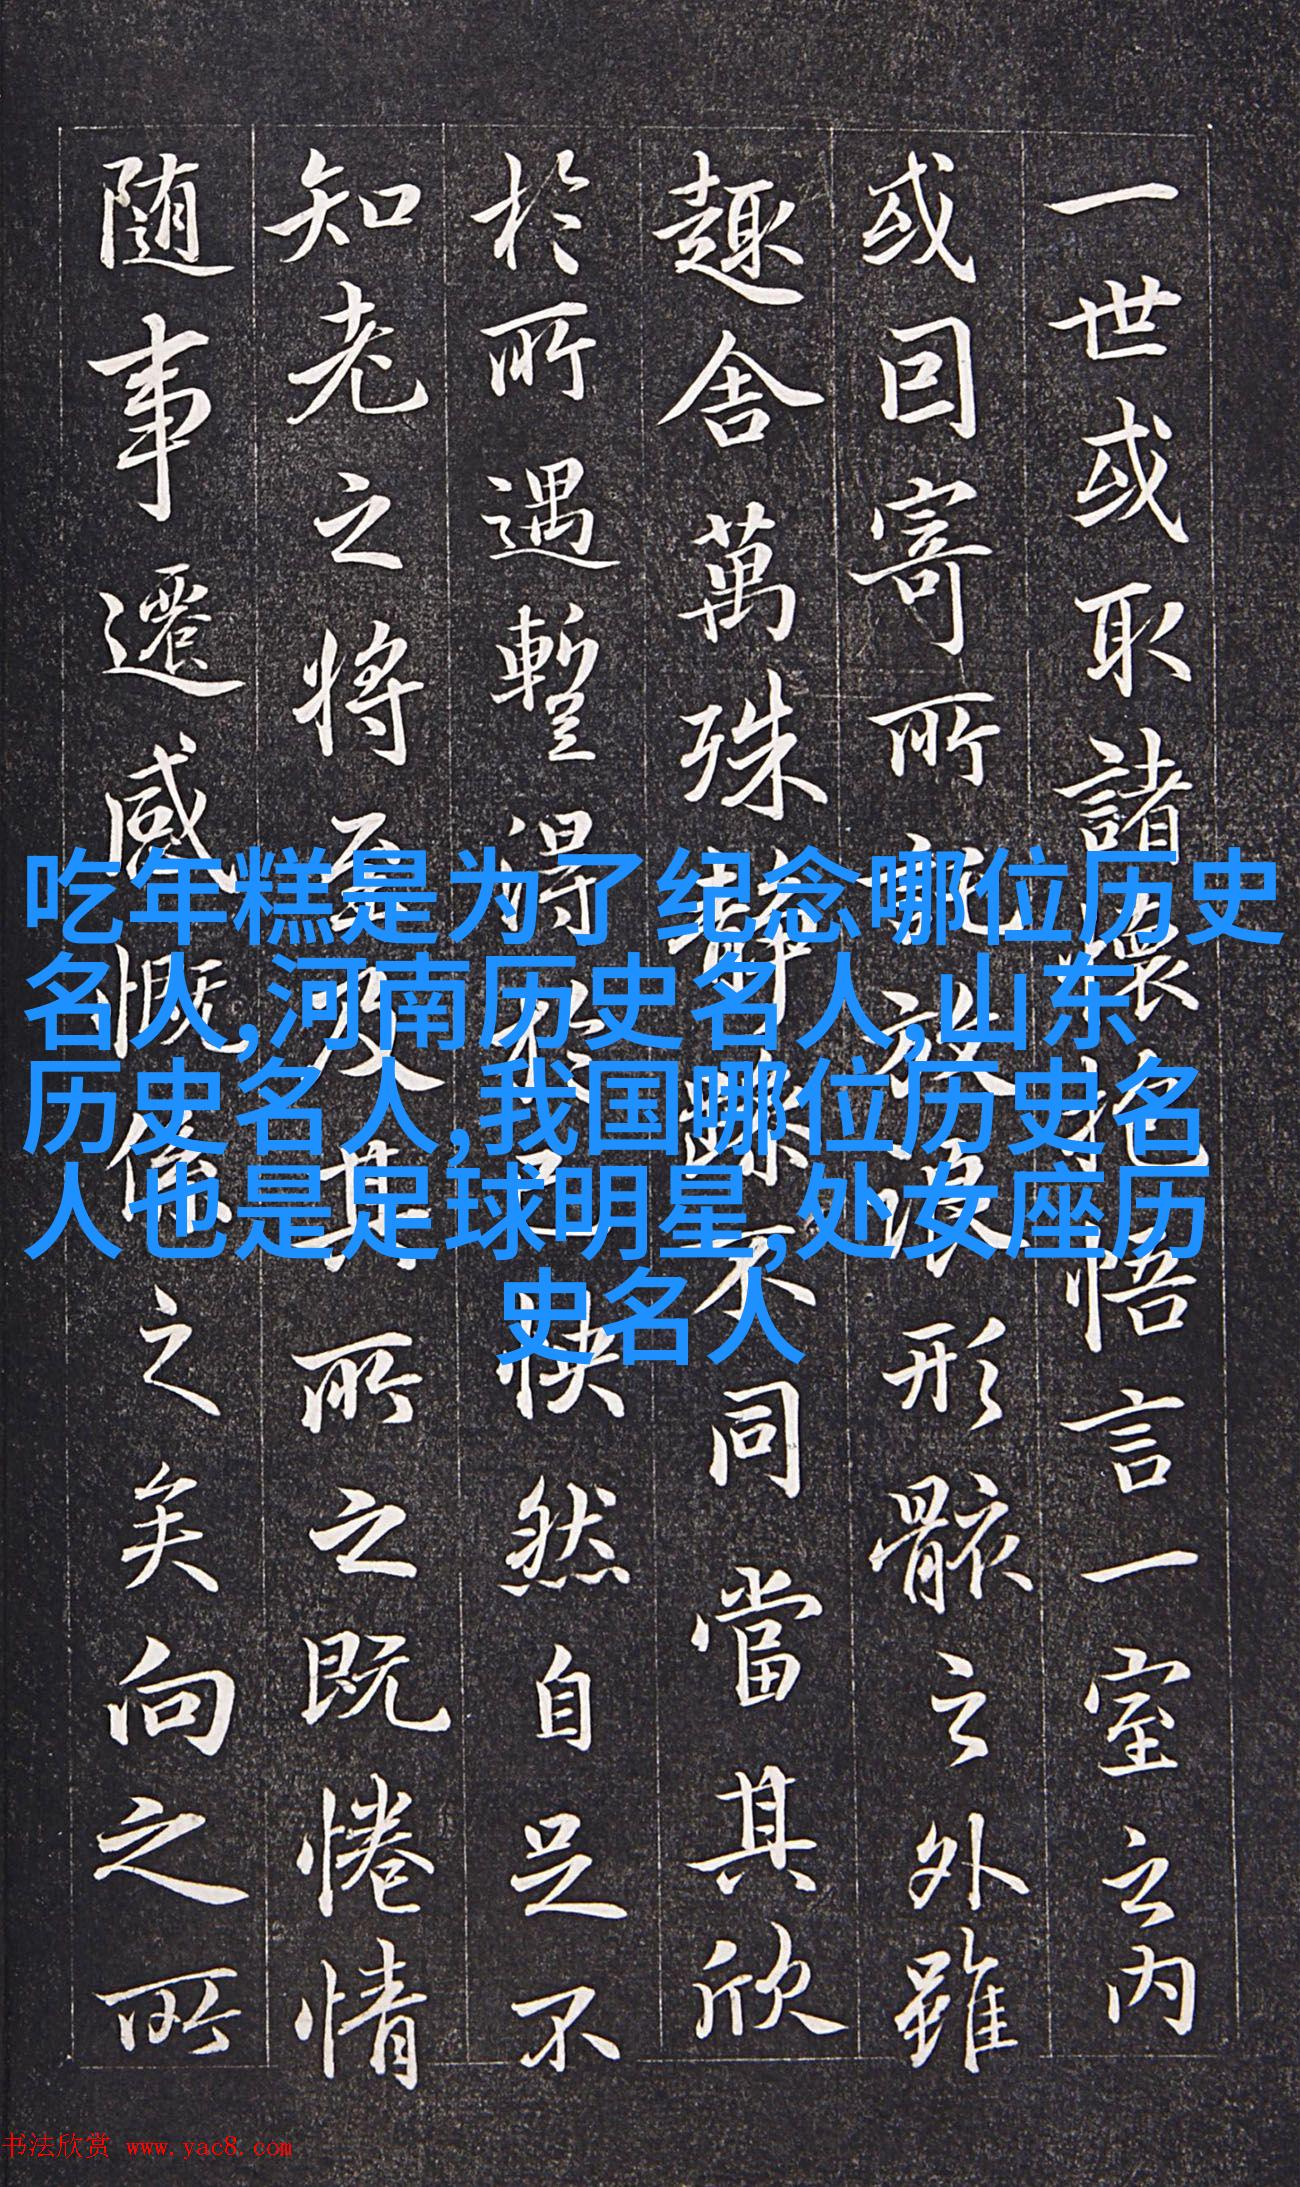 一世或取諸懷抱悟言一室之内
或囙寄所託放浪形骸之外雖
趣舍萬殊靜躁不同當其欣
於所遇暫得於己快然自足不
知老之將至及其所之既惓情
随事遷感慨係之矣向之所
吃年糕是为了纪念哪位历史
名人,河南历史名人,山东
历史名人,我国哪位历史名
人也是足球明星,处女座历
史名人
书法欣赏 www.yac8.com